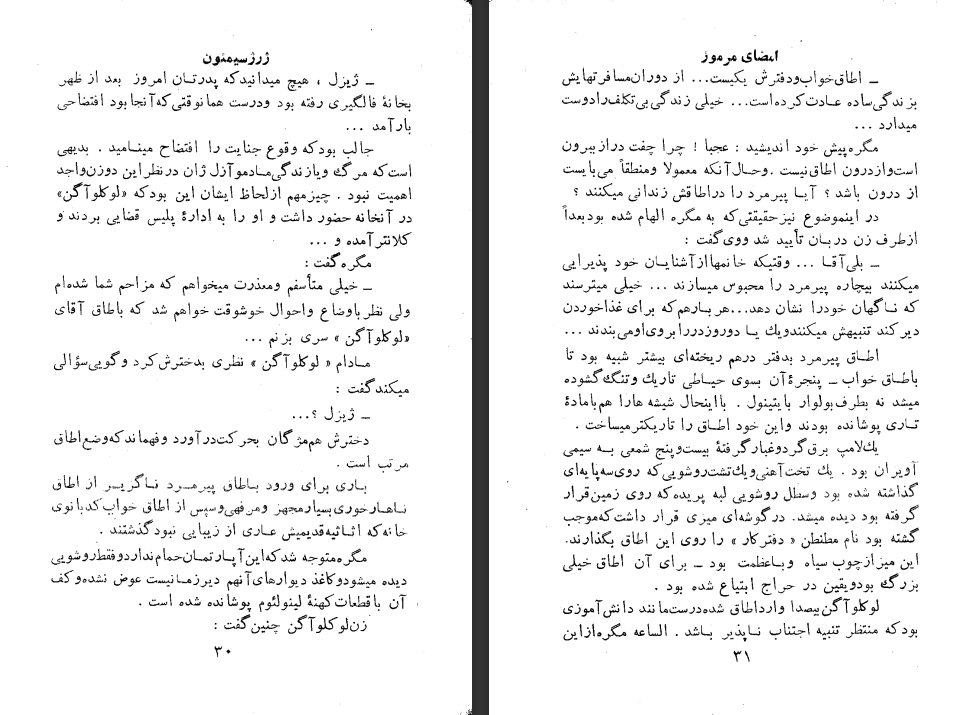 ژرژسیمنون
ـ ژیزل ، هیچ میدانیدکه پدرتان امروز بعد از ظهر
بخانهٔ فالگیری رفته بود ودرست همانوقتی‌که آنجا بود افتضاحی
بارآمد ...
جالب بودکه وقوع جنایت را افتضاح مینامید . بدیهی
است‌که مرگ ویازندگی‌مادموآزل ژان درنظراین دوزن‌واجد
اهمیت نبود . چیزمهم ازلحاظ ایشان این بودکه «لوکلوآگن»
در آنخانه حضور داشت و او را به ادارهٔ پلیس قضایی بردند و
کلانترآمده و ...
مگره‌گفت :
ـ خیلی متأسفم ومعذرت میخواهم که مزاحم شما شده‌ام
ولی نظر باوضاع واحوال خوشوقت خواهم شد که باطاق آقای
«لوکلوآگن » سری بزنم ...
مادام « لوکلوآگن » نظری بدخترش‌کرد وگویی‌سؤالی
میکندگفت :
ـ ژیزل ؟...
دخترش هم‌مژگان بحرکت‌درآورد وفهماندکه‌وضع‌اطاق
مرتب است .
باری برای ورود باطاق پیرمرد ناگریر از اطاق
ناهارخوری‌بسیارمجهز ومرفهی‌وسپس از اطاق خواب‌کدبانوی
خانه‌که اثاثیه‌قدیمیش عاری از زیبایی نبودگذشتند .
مگره‌متوجه شدکه‌این‌آپارتمان‌حمام‌نداردوفقط‌روشویی
دیده میشودوکاغذ دیوارهای‌آنهم دیرزمانیست عوض نشده‌وکف
آن باقطعات‌کهنهٔ لینولئوم پوشانده شده است .
زن‌لوکلوآگن چنین‌گفت :
۳۰
امضای مرموز
ـ اطاق‌خواب‌ودفترش یکیست... از دوران‌مسافرتهایش
بزندگی‌ساده عادت‌کرده‌است... خیلی زندگی بی‌تکلف‌رادوست
میدارد ...
مگره‌پیش خود اندیشید : عجبا ! چرا چفت درازبیرون
است‌وازدرون اطاق‌نیست . وحال‌آنکه معمولا ومنطقاً می‌بایست
از درون باشد ؟ آیا پیرمرد را دراطاقش زندانی میکنند ؟
در اینموضوع نیزحقیقتی‌که به مگره الهام شده بودبعداً
ازطرف زن دربان تأیید شد ووی‌گفت :
ـ بلی‌آقا ... وقتیکه خانمهاازآشنایان خود پذیرایی
میکنند بیچاره پیرمرد را محبوس میسازند ... خیلی میترسند
که ناگهان خودرا نشان دهد...هربارهم‌که برای غذاخوردن
دیرکند تنبیهش میکنندویك یا دوروزدررابروی‌اومی‌بندند ...
اطاق پیرمرد بدفتر درهم ریخته‌ای بیشتر شبیه بود تا
باطاق خواب ـ پنجرهٔ‌آن بسوی حیاطی تاریك‌وتنگ‌گشوده
میشد نه بطرف‌بولوار باپتینول . بااینحال شیشه هارا هم‌بامادهٔ
تاری پوشانده بودند واین خود اطاق را تاریکترمیساخت .
یك‌لامپ برق‌گردوغبارگرفتهٔ بیست‌وپنج شمعی بـه سیمی
آویران بود . یك تخت‌آهنی‌ویك‌تشت‌روشویی‌که روی‌سه‌پایه‌ای
گذاشته شده بود وسطل روشویی لبه پریده‌که روی زمین‌قرار
گرفته بود دیده میشد. درگوشه‌ای میزی قرار داشت‌که‌موجب
گشته بود نام مطنطن « دفترکار » را روی این اطاق بگذارند.
این میزازچوب سیاه وباعظمت بود ـ برای آن اطاق خیلی
بزرگ بودویقین در حراج ابتیاع شده بود .
لوکلوآگن‌بیصدا وارداطاق شده‌درست‌مانند دانش‌آموزی
بودکه منتظر تنبیه اجتناب ناپذیر باشد . الساعه مگره‌ازاین
۳۱